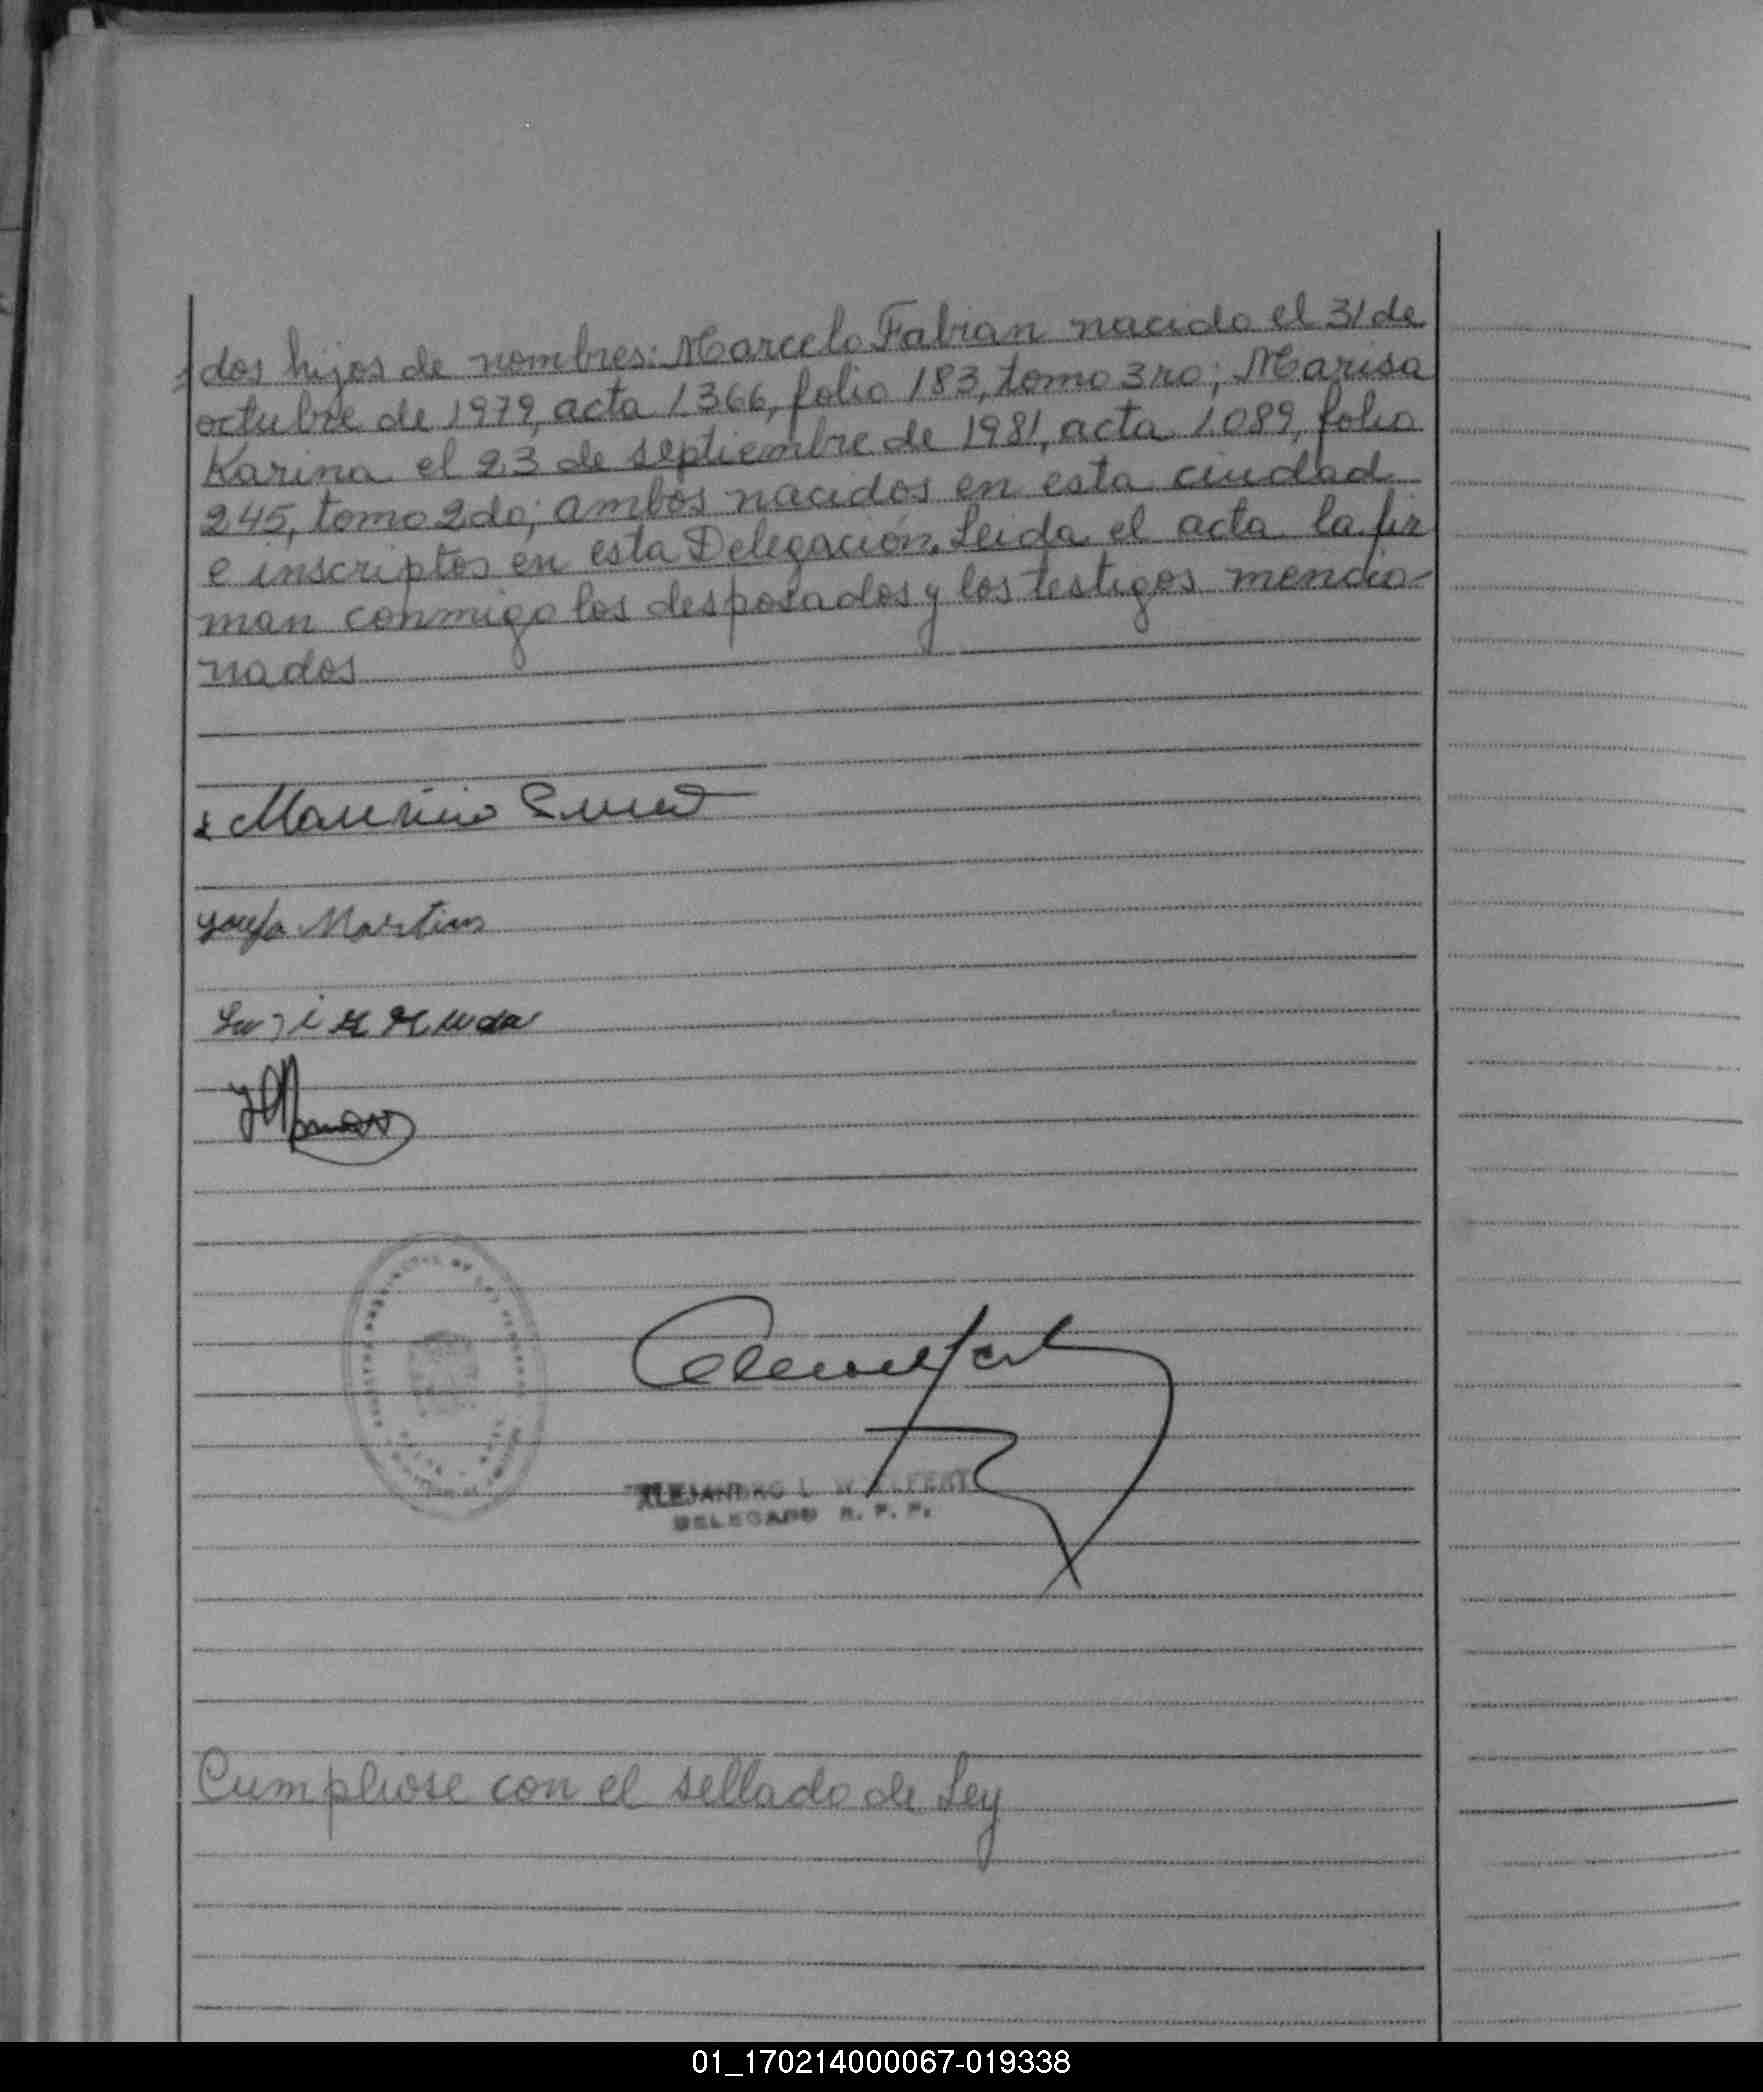 dos hijos de nombres: Marcelo Fabian nacido el 31 de
octubre de 1979, acta 1366, folio 183, tomo 3ro; Marisa
Karina el 23 de septiembre de 1981, acta 1089, folio
245, tomo 2do; ambos nacidos en esta ciudad
e inscriptos en esta Delegación. Leida el acta la fir
man conmigo los desposados y los testigos mencio-
nados
Mauricio
Josefa Martins
ALEJANDRO L. W
DELEGADO R. P. P.
Cumpliose con el sellado de Ley
01_170214000067-019338